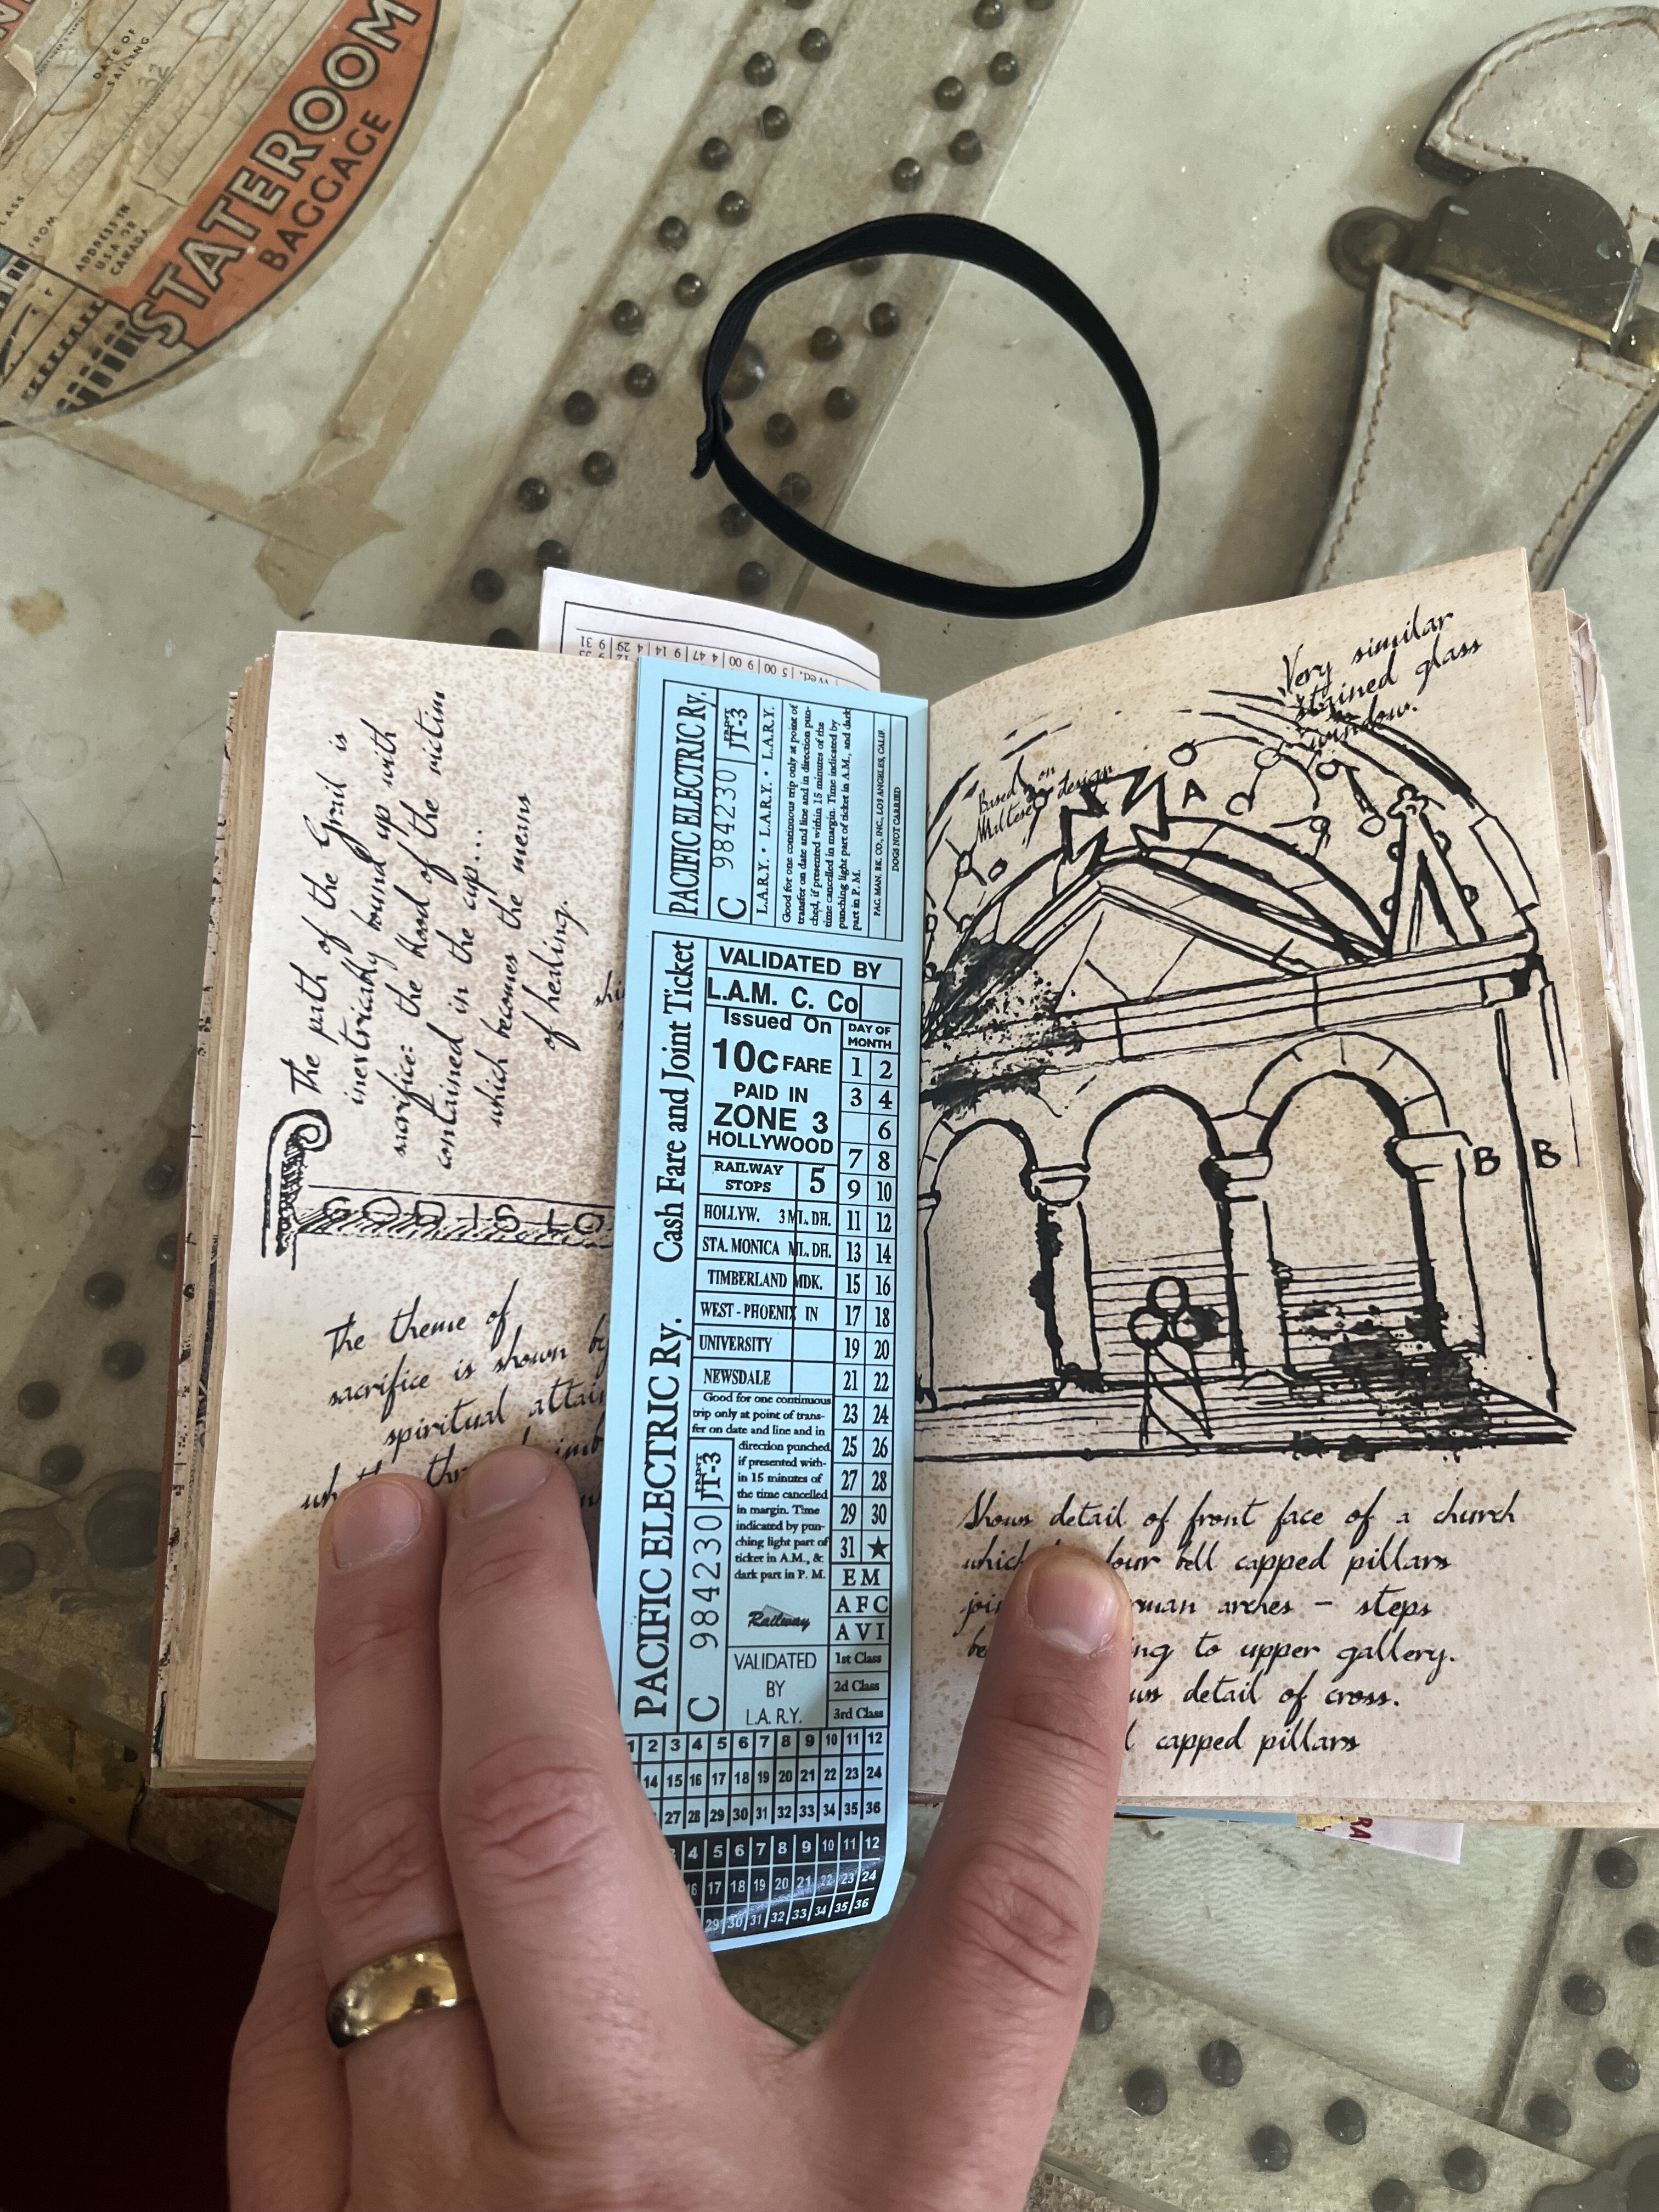 DATE OF
SAILING
ADDRESS IN
USA OR
CANADA
FROM
STATEROOM
BAGGAGE
The path of the Grail is
inextricably bound up with
sacrifice: the blood of the victim
contained in the cup...
which becomes the means
of healing.
The theme of
sacrifice is shown by
spiritual
PACIFIC ELECTRIC Ry.
C 984230 JT-3
L.A.RY. • L.A.RY. • L.A.RY.
Good for one continuous trip only at point of
transfer on date and line and in direction pun-
ched, if presented within 15 minutes of the
time cancelled in margin. Time indicated by
punching light part of ticket in A.M., and dark
part in P. M.
PAC. MAN. BK. CO., INC., LOS ANGELES, CALIF.
DOGS NOT CARRIED
PACIFIC ELECTRIC Ry. Cash Fare and Joint Ticket
C 984230 JT-3
VALIDATED BY
L.A.M. C. Co
Issued On
10c FARE
PAID IN
ZONE 3
HOLLYWOOD
RAILWAY
STOPS 5
HOLLYW. 3 ML. DH.
STA. MONICA ML. DH.
TIMBERLAND MDK.
WEST - PHOENIX IN
UNIVERSITY
NEWSDALE
Good for one continuous
trip only at point of trans-
fer on date and line and in
direction punched,
if presented with-
in 15 minutes of
the time cancelled
in margin. Time
indicated by pun-
ching light part of
ticket in A.M., &
dark part in P. M.
Railway
VALIDATED
BY
L.A. R.Y.
DAY OF
MONTH
1 2
3 4
6
7 8
9 10
11 12
13 14
15 16
17 18
19 20
21 22
23 24
25 26
27 28
29 30
31 ★
E M
A F C
A V I
1st Class
2d Class
3rd Class
1 2 3 4 5 6 7 8 9 10 11 12
14 15 16 17 18 19 20 21 22 23 24
27 28 29 30 31 32 33 34 35 36
4 5 6 7 8 9 10 11 12
16 17 18 19 20 21 22 23 24
29 30 31 32 33 34 35 36
Very similar
stained glass
window.
Based on
Maltese design
A
C
B B
Shows detail of front face of a church
bell capped pillars
arches - steps
to upper gallery.
detail of cross.
capped pillars